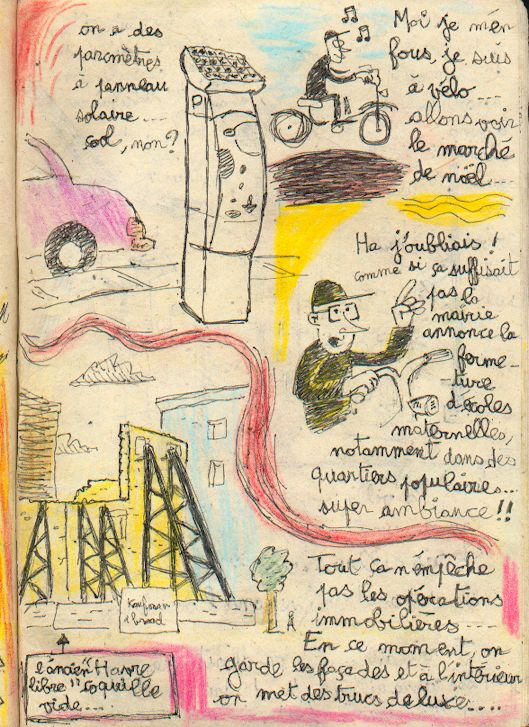 on a des
parcmètres
à panneau
solaire....
cool, non?
Moi je m'en
fous, je suis
à vélo....
allons voir
le marché
de noël....
Ha j'oubliais !
comme si ça suffisait
pas la
mairie
annonce la
ferme-
ture
d'écoles
maternelles,
notamment dans des
quartiers populaires...
super ambiance !!
Tout ça n'empêche
pas les opérations
immobilières....
En ce moment, on
garde les façades et à l'intérieur
on met des trucs de luxe....
Kaufman
& broad
l'ancien "Havre
libre" coquille
vide...